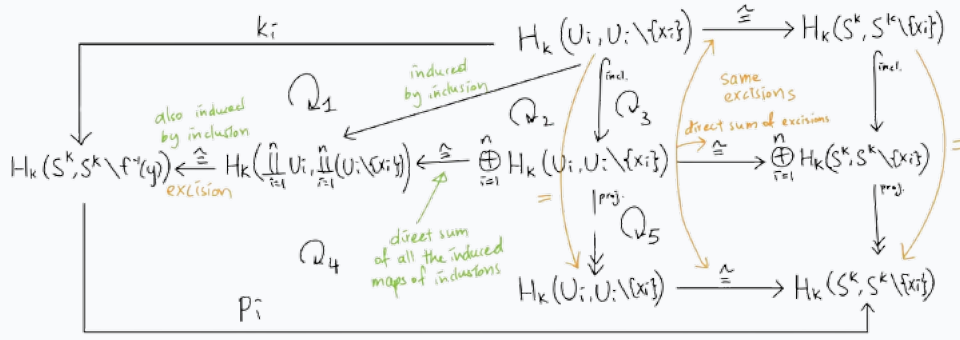 kᵢ
Hₖ(Uᵢ, Uᵢ\{xᵢ})
≅
Hₖ(Sᵏ, Sᵏ\{xᵢ})
1
induced
by inclusion
incl.
same
excisions
incl.
also induced
by inclusion
2
3
direct sum of excisions
Hₖ(Sᵏ, Sᵏ\f⁻¹(y))
≅
Hₖ(∐ⁿᵢ₌₁ Uᵢ, ∐ⁿᵢ₌₁(Uᵢ\{xᵢ}))
≅
⊕ⁿᵢ₌₁ Hₖ(Uᵢ, Uᵢ\{xᵢ})
≅
⊕ⁿᵢ₌₁ Hₖ(Sᵏ, Sᵏ\{xᵢ})
=
excision
=
proj.
proj.
5
4
direct sum
of all the induced
maps of inclusions
Hₖ(Uᵢ, Uᵢ\{xᵢ})
≅
Hₖ(Sᵏ, Sᵏ\{xᵢ})
pᵢ